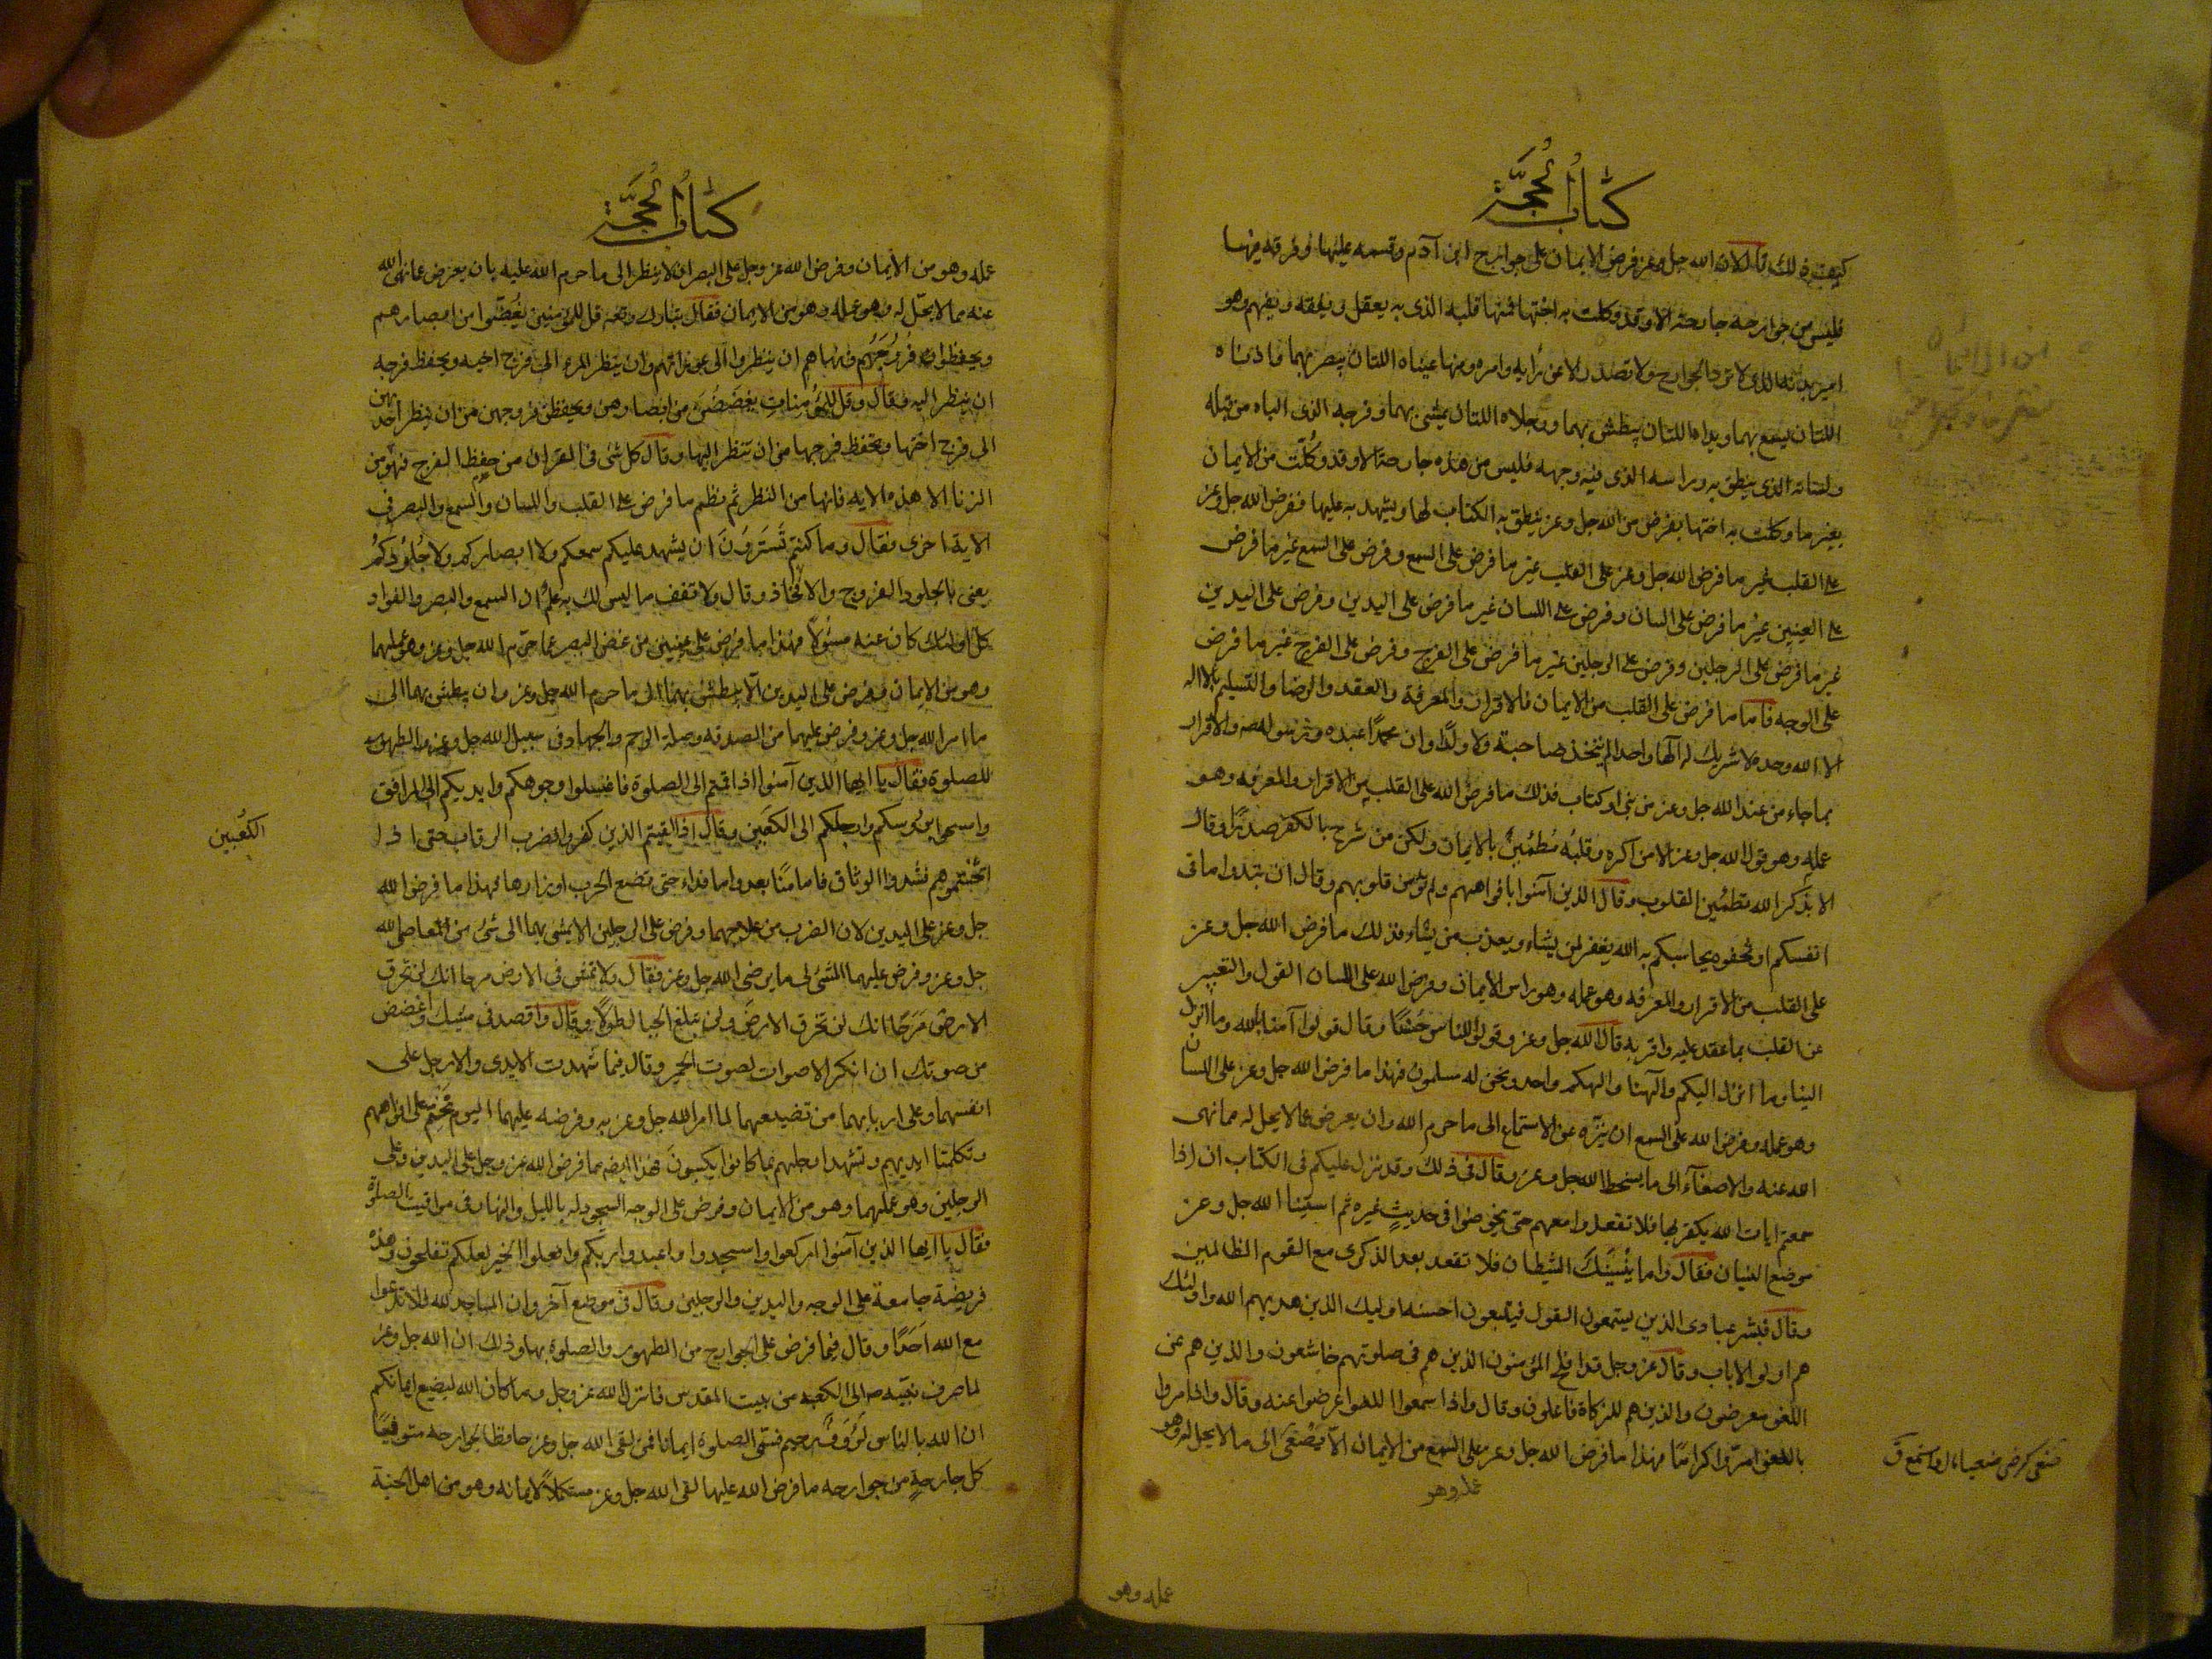 كتاب الحجة
كيف ذلك قال لان الله جل وعز فرض الايمان على جوارح ابن آدم وقسمه عليها وفرقه فيها
فليس من جوارحه جارحة الا وقد وكلت به اختها فمنها قلبه الذى به يعقل ويفقه ويفهم وهو
امير بدنه الذى لا ترد الجوارح ولا تصدر الا عن رايه وامره ومنها عيناه اللتان يبصر بهما واذناه
اللتان يسمع بهما ويداه اللتان يبطش بهما ورجلاه اللتان يمشى بهما وفرجه الذى الباه من قبله
ولسانه الذى ينطق به وراسه الذى فيه وجهه فليس من هذه جارحة الا وقد وُكّلت من الايمان
بغير ما وكلت به اختها بفرض من الله جل وعز ينطق به الكتاب لها ويشهد به عليها ففرض الله جل وعز
على القلب غير ما فرض الله جل وعز على القلب غير ما فرض على السمع وفرض على السمع غير ما فرض
على العينين غير ما فرض على اللسان وفرض على اللسان غير ما فرض على اليدين وفرض على اليدين
غير ما فرض على الرجلين وفرض على الرجلين غير ما فرض على الفرج وفرض على الفرج غير ما فرض
على الوجه فاما ما فرض على القلب من الايمان فالاقرار والمعرفة والعقد والرضا والتسليم بان لا اله
الا الله وحده لا شريك له الها واحدا لم يتخذ صاحبة ولا ولدًا وان محمدًا عبده ورسوله صه والاقرار
بما جاء من عند الله جل وعز من نبى او كتاب فذلك ما فرض الله على القلب من الاقرار والمعرفه وهو
عمله وهو قول الله جل وعز الا من اكره وقلبُه مُطمَئنٌّ بالايمان ولكن من شرح بالكفر صدرًا وقال
الا بذكر الله تطمئن القلوب وقال الذين آمنوا بافواههم ولم تؤمن قلوبهم وقال ان تبدوا ما فى
انفسكم او تخفوه يحاسبكم به الله يغفر لمن يشاء ويعذب من يشاء فذلك ما فرض الله جل وعز
على القلب من الاقرار والمعرفه وهو عمله وهو راس الايمان وفرض الله على اللسان القول والتعبير
عن القلب بما عقد عليه واقر به قال الله جل وعز وقولوا للناس حُسْنًا وقال قولوا آمنا بالله وما انزل
الينا وما انزل اليكم والهنا والهكم واحد ونحن له مسلمون فهذا ما فرض الله جل وعز على اللسان
وهو عمله وفرض الله على السمع ان يتنزه عن الاستماع الى ما حرم الله وان يعرض عما لا يحل له مما نهى
الله عنه والاصغآء الى ما يسخط الله جل وعز وقال فى ذلك وقد نزل عليكم فى الكتاب ان اذا
سمعتم ايات الله يكفر بها فلا تقعدوا معهم حتى يخوضوا فى حديثٍ غيره ثم استثنا الله جل وعز
موضع النسيان فقال واما ينُسِيَنّكَ الشيطان فلا تقعد بعد الذكرى مع القوم الظالمين
وقال فبشر عبادى الذين يستمعون القول فيتبعون احسنه اوليك الذين هديهم الله واولئك
هم اولو الالباب وقال عز وجل قد افلح المؤمنون الذين هم فى صلوتهم خاشعون والذين هم عن
اللغو معرضون والذين هم للزكاة فاعلون وقال واذا سمعوا اللغو اعرضوا عنه وقال واذا مروا
باللغو امرّوا كرامًا فهذا ما فرض الله جل وعز على السمع من الايمان الّا يُصْغىَ الى ما لا يحل له وهو
عمله وهو
عمله وهو
كتاب الحجة
عمله وهو من الايمان وفرض الله عز وجل على البصر ان لا ينظر الى ما حرم الله عليه بان يعرض عما نهى الله
عنه مما لا يحلّ له وهو عمله وهو من الايمان فقال تبارك وتعه قل للمؤمنين يُغضّوا من ابصارهم
ويحفظوا فروجَهُم فنهاهم ان ينظروا الى عوراتهم وان ينظر المرء الى فرج اخيه ويحفظ فرجه
ان ينظر اليه وقال وقل للمؤمنات يغضَضْن من ابصارهن ويحفظن فروجهن من ان ينظر احديهن
الى فرج اختها وتحفظ فرجها من ان تنظر اليها وقال كل شى فى القران من حفظ الفرج فهو من
الزنا الا هذه الايه فانها من النظر ثم نظم ما فرض على القلب واللسان والسمع والبصر فى
الاية اخرى فقال وما كنتم تَستَترُونَ ان يشهد عليكم سمعكم ولا ابصاركم ولا جُلوُدُكمُ
يعنى بالجلود الفروج والافخاذ وقال ولا تقف ما ليس لك به علم ان السمع والبصر والفواد
كلّ اولئك كان عنه مسئولًا فهذا ما فرض على عينين من غض البصر عما حرّم الله جل وعز وهو عملهما
وهو من الايمان وفرض على اليدين الّا يبطش بهما الى ما حرم الله جل وعز وان يبطش بهما الى
ما امر الله جل وعز وفرض عليهما من الصدقه وصلة الرحم والجهاد فى سبيل الله جل وعز والطهور
للصلوة فقال يا ايها الذين آمنوا اذا قمتم الى الصلوة فاغسلوا وجوهكم وايديكم الى المرافق
وامسحوا برؤسكم وارجلكم الى الكعبين وقال اذا لقيتم الذين كفروا فضرب الرقاب حتى اذا
اثخنتموهم فشدوا الوثاق فاما منًّا بعد واما فداء حتى تضع الحرب اوزارها فهذا ما فرض الله
جل وعز على اليدين لان الضرب من علاجهما وفرض على الرجلين الا يمشى بهما الى شئ من المعاصى لله
جل وعز وفرض عليهما المشى الى ما يرضى الله جل وعز فقال ولا تمش فى الارض مرحا انك لن تخرق
الارض مَرَحًا انك لن تخرق الارض ولن تبلغ الجبال طولًا وقال واقصد فى مشيك واغضض
من صوتك ان انكر الاصوات لصوت الحمير وقال فيما شهدت الايدى والارجل على
انفسهما وعلى اربابهما من تضييعهما لما امر الله جل وعز به وفرضه عليهما اليوم نَخْتِمُ على افواههم
وتكلمنا ايديهم وتشهد ارجلهم بما كانوا يكسبونَ فهذا ايضه مما فرض الله عز وجل على اليدين وعلى
الرجلين وهو عملهما وهو من الايمان وفرض على الوجه السجود له بالليل والنهار فى مواقيت الصلوة
فقال يا ايها الذين آمنوا اركعوا واسجدوا واعبدوا ربّكم وافعلوا الخير لعلكم تفلحون وهذه
فريضة جامعة على الوجه واليدين والرجلين وقال فى موضع آخر وان المساجد لله فلا تدعوا
مع الله اَحَدًا وقال فيما فرض على الجوارح من الطهور والصلوة بها وذلك ان الله جل وعز
لما صرف نبيّه صه الى الكعبه من بيت المقدس فانزل الله عز وجل وما كان الله ليضيع ايمانكم
ان الله بالناس لَرَؤفٌ رحيم فسمّى الصلوة ايمانا فمن لقى الله جل وعز حافظا لجوارحه متوفيًا
كل جارحةٍ من جوارحه ما فرض الله عليها لقى الله جل وعز مستكملًا لايمانه وهو من اهل الجنة
الكعبين